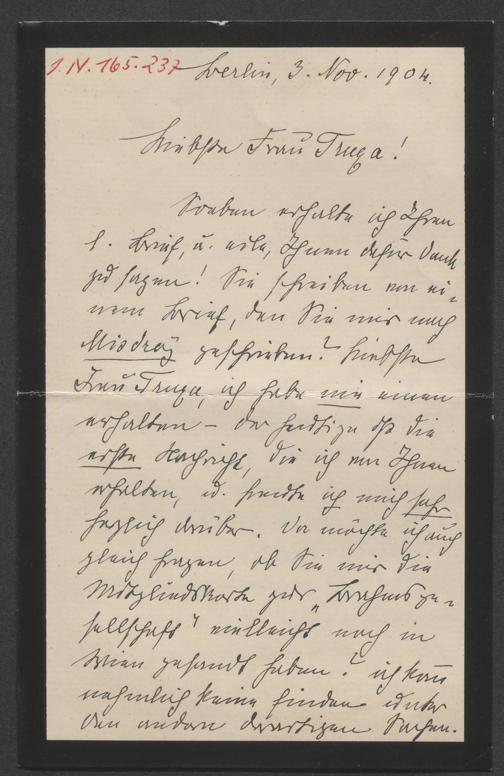 I.N. 165.237
Berlin, 3. Nov. 1904.
Liebste Frau Truxa!
Soeben erhalte ich Ihren
l. Brief, u. eile, Ihnen dafür Dank
zu sagen! Sie schreiben von ei-
nem Brief, den Sie mir nach
Misdroy geschrieben? Liebste
Frau Truxa, ich habe nie einen
erhalten – der heutige ist die
erste Nachricht, die ich von Ihnen
erhalten, u. freute ich mich sehr
herzlich darüber. Da möchte ich auch
gleich fragen, ob Sie mir die
Mitgliedskarte zur „Brahmsge-
sellschaft" vielleicht noch in
Wien gesandt haben? ich kann
nehmlich keine finden unter
den andern derartigen Sachen.